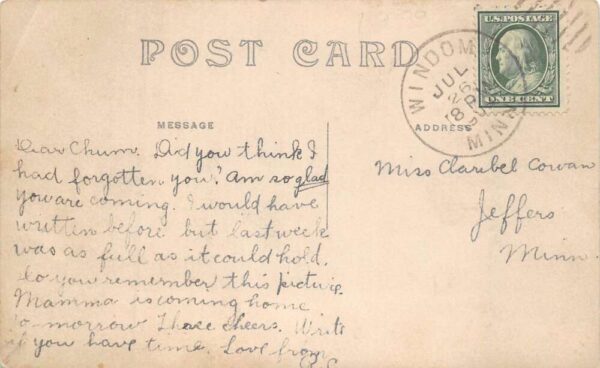 POST CARD
U.S. POSTAGE
ONE CENT
WINDOM
JUL
26
8 P
MINN
MESSAGE
ADDRESS
Dear Chum. Did you think I
had forgotten you? Am so glad
you are coming. I would have
written before but last week
was as full as it could hold.
Do you remember this picture.
Mamma is coming home
to-morrow Three cheers. Write
if you have time. Love from
Miss Claribel Cowan
Jeffers
Minn.